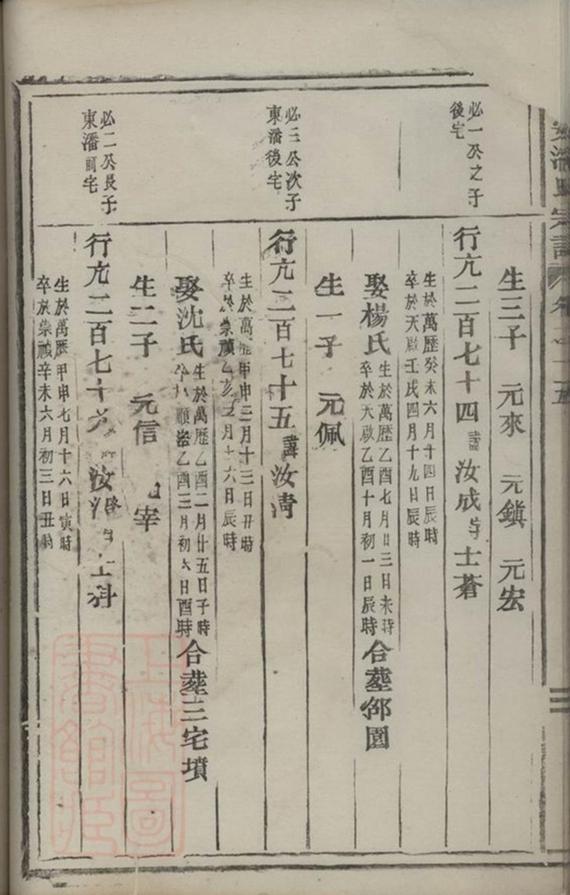 生三子 元來 元鎮 元宏
必一公之子
後宅
行亢二百七十四 諱汝成字士蒼
生於萬歷癸未六月十四日辰時
卒於天啟壬戌四月十九日辰時
娶楊氏 生於萬歷乙酉七月廿三日未時
卒於天啟乙酉十月初一日辰時 合塟邻園
生一子 元佩
必三公次子
東潘後宅
行亢二百七十五 諱汝淸
生於萬歷甲申三月十三日丑時
卒於崇禎乙亥 月十六日辰時
娶沈氏 生於萬歷乙酉二月廿五日子時
卒於順治乙酉三月初 日酉時 合塟三宅墳
生二子 元信 宰
必二公長子
東潘前宅
行亢二百七十 汝 科
生於萬歷甲申七月十六日寅時
卒於崇禎辛未六月初三日丑時